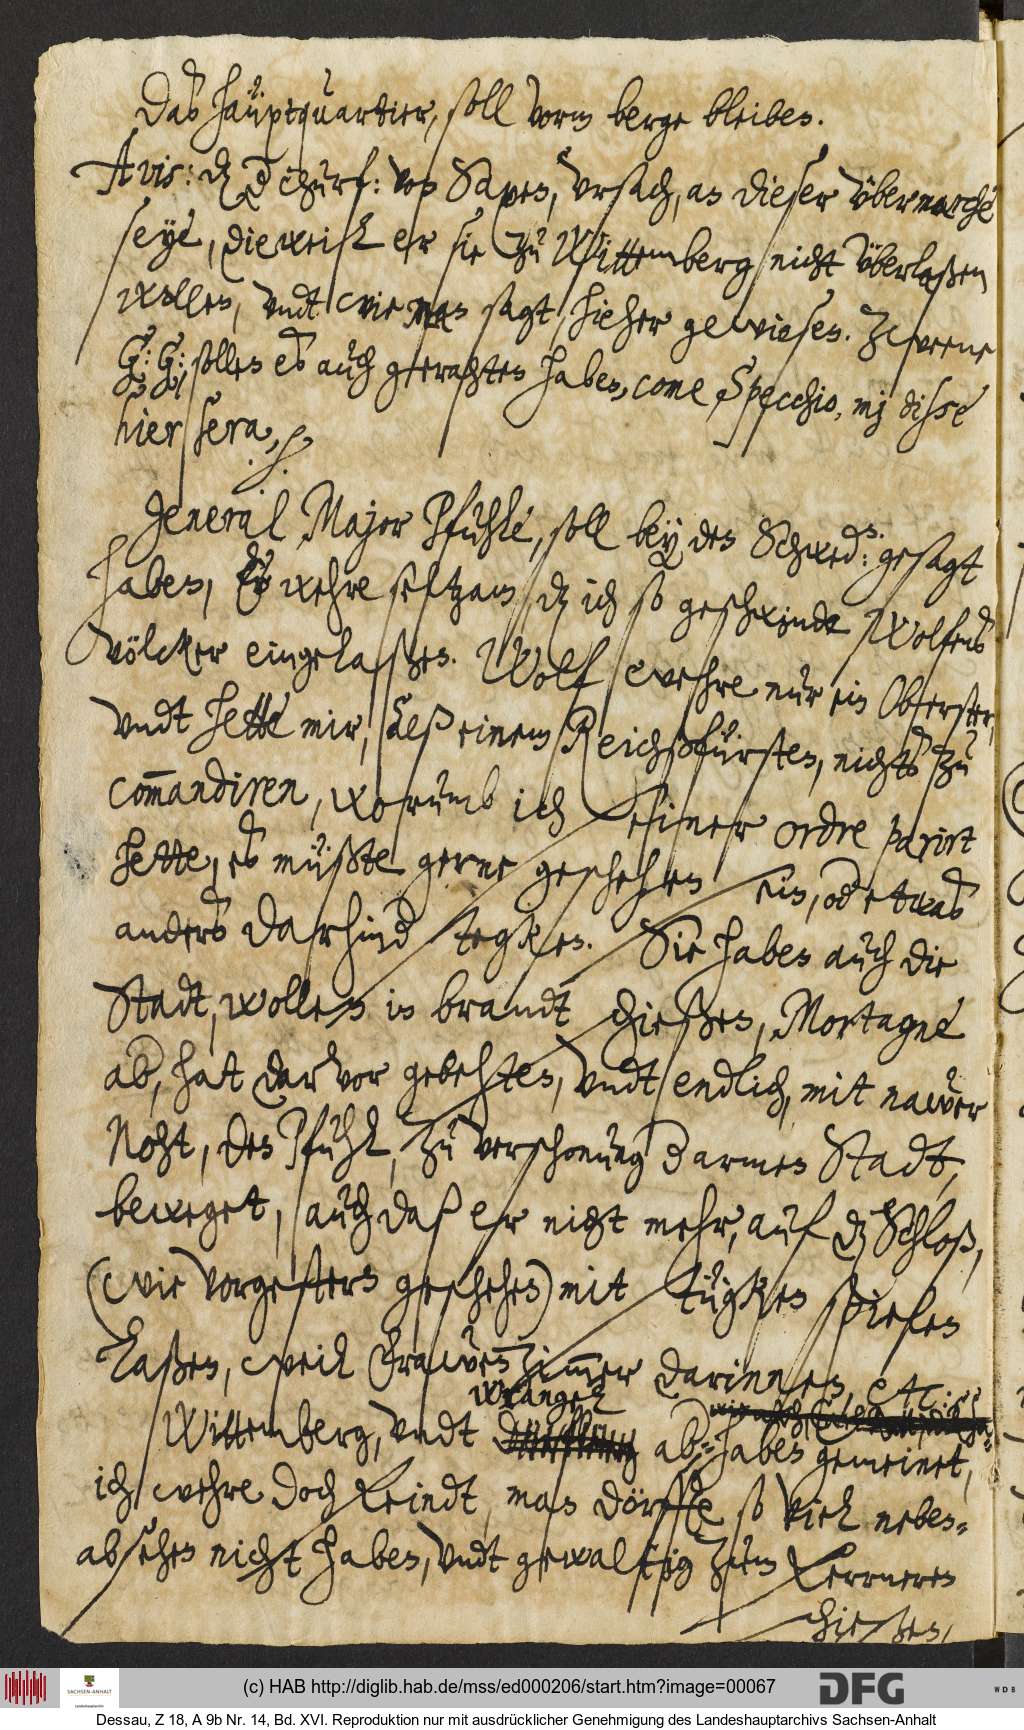 Das häuptquartier, soll vorm berge bleiben.
Avis: dz der Churf: von Saxen, vrsach, an dieser vbermarche
seye, dieweil er sie zu Wittemberg nicht vberlaßen
wollen, vndt wie man sagt hieher gewiesen. Zweene
G: G: sollen es auch gerahten haben, come Specchio, mj disse
hier sera,
General Major Pfuhle, soll bey den Schwed: gesagt
haben, Es wehre seltzam dz ich so geschwinde Wolfens
völcker eingelaßen. Wolf wehre nur ein Oberster,
vndt hette mir, alß einem Reichßfürsten, nichts zu
com̄andiren, worumb ich seiner ordre parirt
hette, es müßte gerne geschehen sein, oder etwas
anders darhinder stegken. Sie haben auch die
Stadt, wollen in brandt schießen, Mortagne
ab, hat darvor gebehten, vndt endlich, mit nawer
Noht, den Pfuhl, zu verschonung der armen Stadt,
beweget, auch daß er nicht mehr, auf dz Schloß,
(wie vorgestern geschehen) mit stügken spielen
laßen, weil Frawenzim̄er darinnen, etc:
Wrangel
Wittemberg, vndt ab- haben gemeinet,
ich wehre doch feindt, man dörffte so viel neben-
absehen nicht haben, vndt gewaltig zum
schießen,
(c) HAB http://diglib.hab.de/mss/ed000206/start.htm?image=00067
SACHSEN-ANHALT
DFG
W D B
Dessau, Z 18, A 9b Nr. 14, Bd. XVI. Reproduktion nur mit ausdrücklicher Genehmigung des Landeshauptarchivs Sachsen-Anhalt